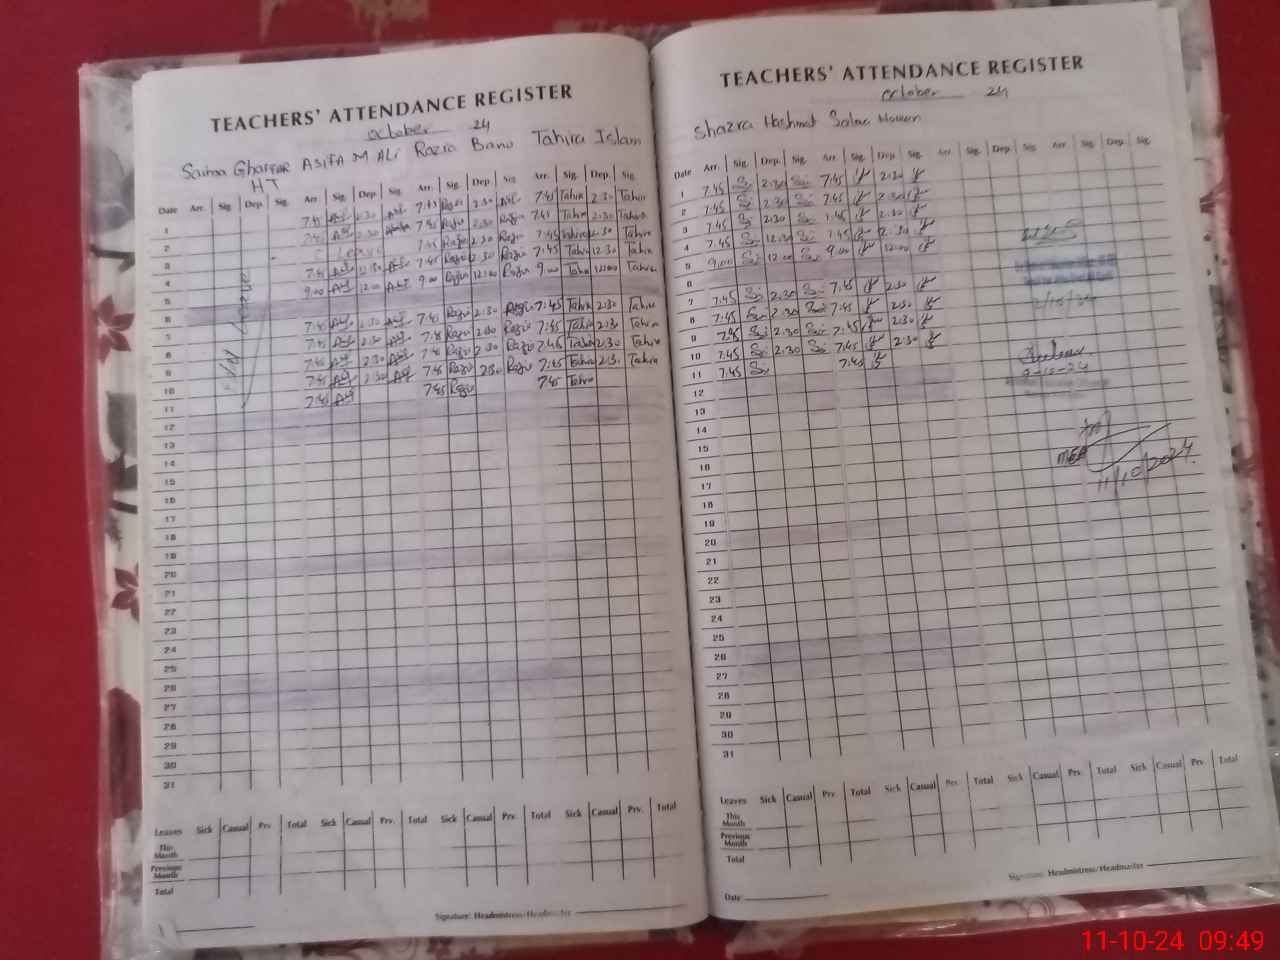 TEACHERS' ATTENDANCE REGISTER
October 24
Saima Ghaffar ASIFA M ALi Razia Bano Tahira Islam
HT
Date Arr. Sig. Dep. Sig. Arr Sig. Dep. Sig. Arr. Sig. Dep. Sig. Arr. Sig. Dep. Sig.
1 7:45 2:30 7:45 Razia 2:30 7:45 Tahira 2:30 Tahira
2 7:45 2:30 7:45 Razia 2:30 Razia 7:45 Tahira 2:30 Tahira
3 Leave 7:45 Razia 2:30 Razia 7:45 Tahira 2:30 Tahira
4 7:45 12:30 7:45 Razia 12:30 Razia 7:45 Tahira 12:30 Tahira
5 9:00 12:00 9:00 Razia 12:00 Razia 9:00 Tahira 12:00 Tahira
6
7 7:45 2:30 7:45 Razia 2:30 Razia 7:45 Tahira 2:30 Tahira
8 7:45 2:30 7:45 Razia 2:30 Razia 7:45 Tahira 2:30 Tahira
9 7:45 2:30 7:45 Razia 2:30 Razia 7:45 Tahira 2:30 Tahira
10 7:45 2:30 7:45 Razia 2:30 Razia 7:45 Tahira 2:30 Tahira
11 7:45 7:45 Razia 7:45 Tahira
12
13
14
15
16
17
18
19
20
21
22
23
24
25
26
27
28
29
30
31
Leave
Leaves Sick Casual Prv. Total Sick Casual Prv. Total Sick Casual Prv. Total Sick Casual Prv. Total
This Month
Previous Month
Total
Signature: Headmistress/Headmaster
TEACHERS' ATTENDANCE REGISTER
October 24
Shazra Hashmat Salma
Date Arr. Sig. Dep. Sig. Arr. Sig. Dep. Sig. Arr. Sig. Dep. Sig. Arr. Sig. Dep. Sig.
1 7:45 2:30 7:45 2:30
2 7:45 2:30 7:45 2:30
3 7:45 2:30 7:45 2:30
4 7:45 12:30 7:45 12:30
5 9:00 12:00 9:00 12:00
6
7 7:45 2:30 7:45 2:30
8 7:45 2:30 7:45 2:30
9 7:45 2:30 7:45 2:30
10 7:45 2:30 7:45 2:30
11 7:45 7:45
12
13
14
15
16
17
18
19
20
21
22
23
24
25
26
27
28
29
30
31
9-10-24
MEA
11/10/2024
Leaves Sick Casual Prv. Total Sick Casual Prv. Total Sick Casual Prv. Total Sick Casual Prv. Total
This Month
Previous Month
Total
Signature: Headmistress/Headmaster
Date
11-10-24 09:49